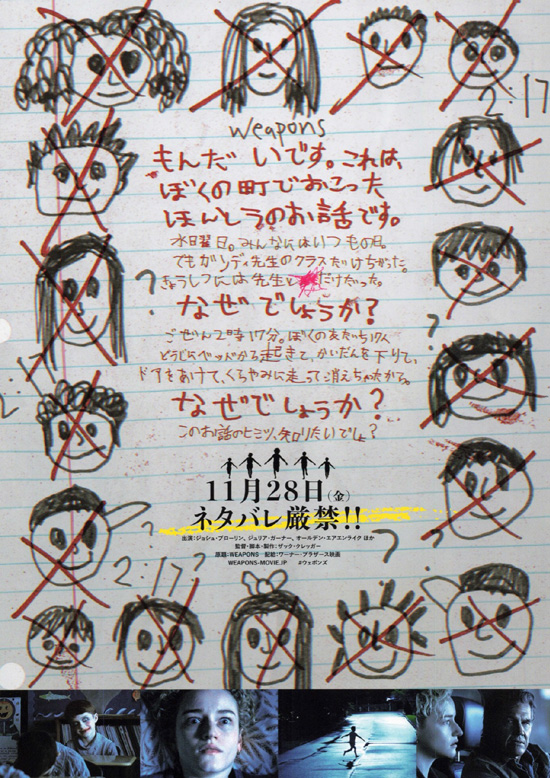 2:17
weapons
もんだいです。これは、
ぼくの町でおこった
ほんとうのお話です。
水曜日。みんなにはいつもの日。
でもガンディ先生のクラスだけちがった。
きょうしつには先生と だけだった。
なぜでしょうか？
ごぜん2時17分。ぼくの友だち17人
どうじにベッドから起きて、かいだんを下りて、
ドアをあけて、くらやみに走って消えちゃたから。
なぜでしょうか？
このお話のヒミツ、知りたいでしょ？
?
?
2:17
11月28日(金)
ネタバレ厳禁!!
出演：ジョシュ・ブローリン、ジュリア・ガーナー、オールデン・エアエンライク ほか
監督・脚本・製作：ザック・クレッガー
原題：WEAPONS 配給：ワーナー・ブラザース映画
WEAPONS-MOVIE.JP #ウェポンズ
?
?
2:17?